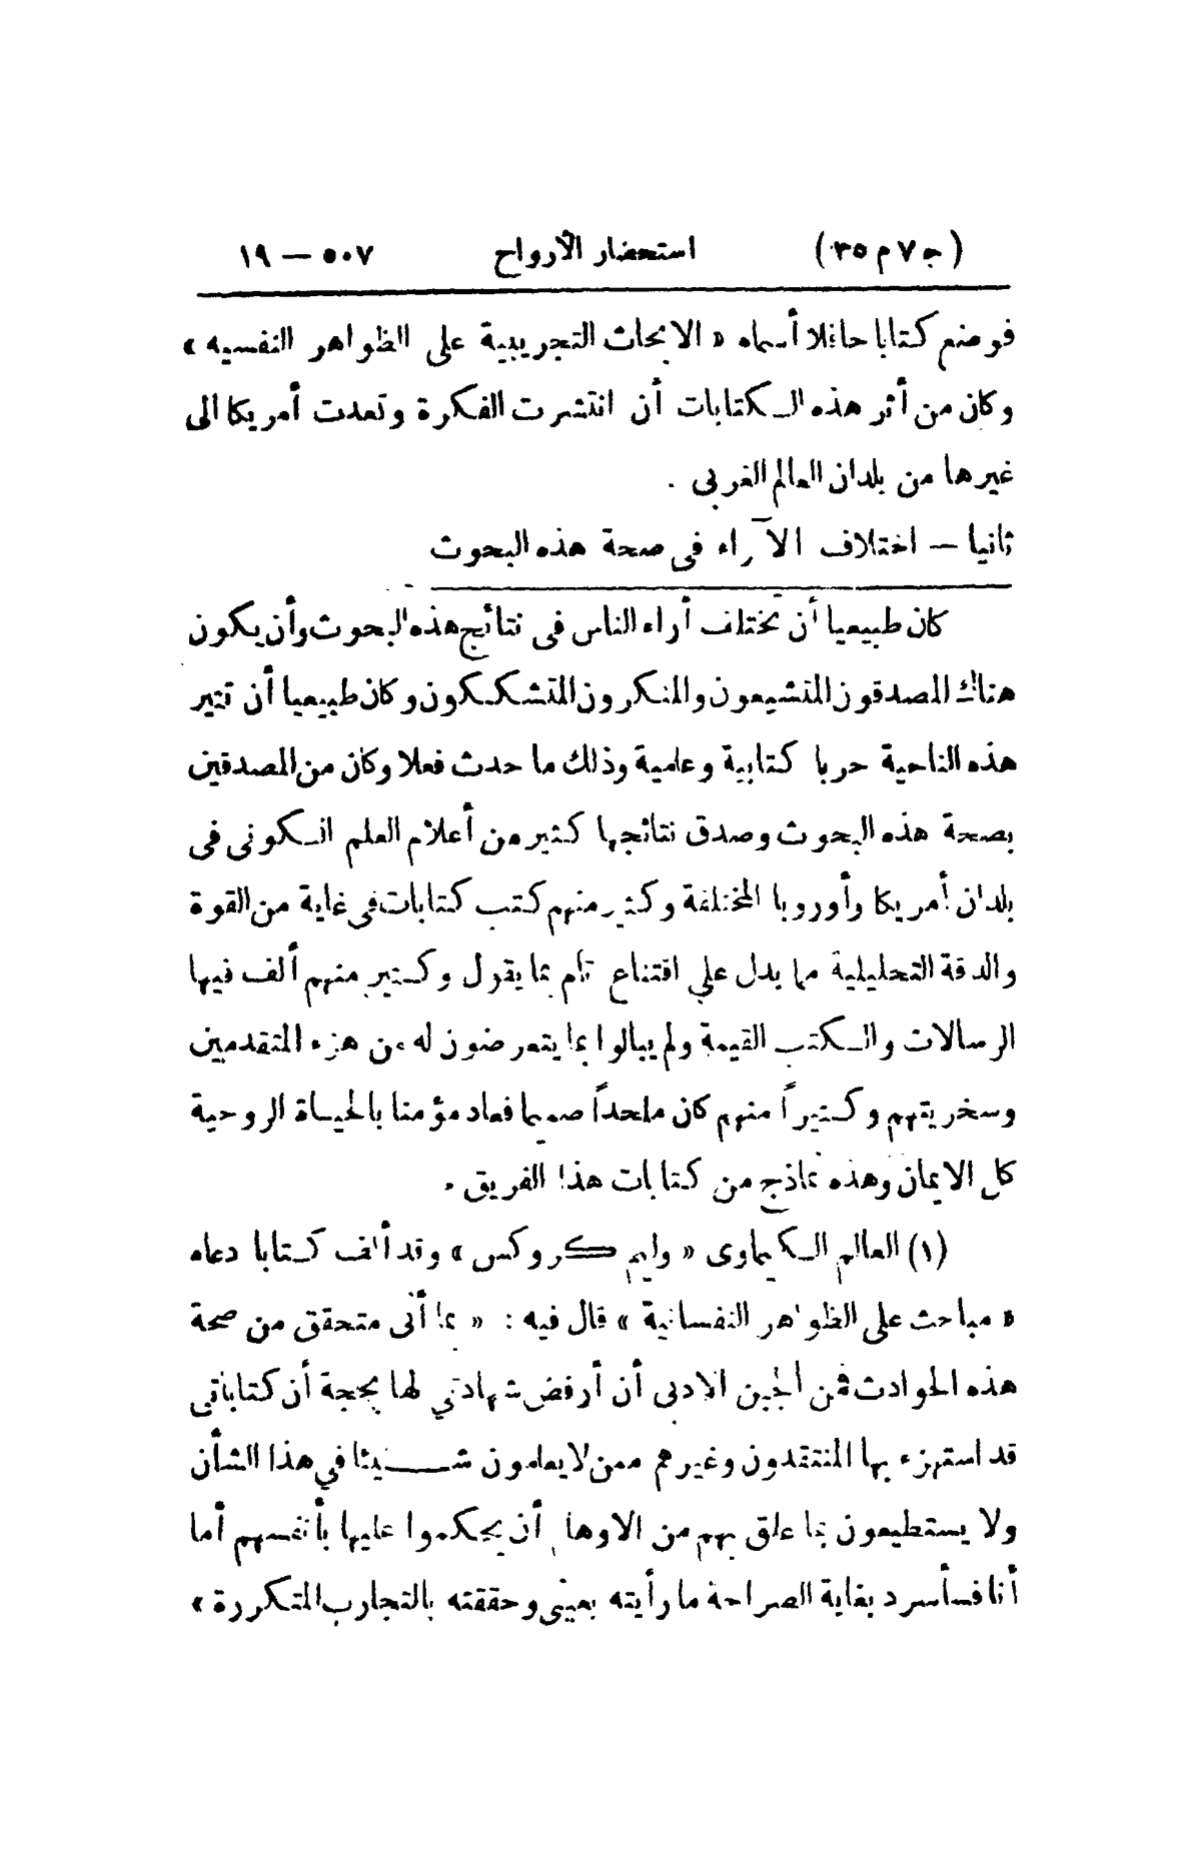 (ج ٧ م ٣٥) استحضار الأرواح ٥٠٧ — ١٩
فوضع كتابا حافلا أسماه « الابحاث التجريبية على الظواهر النفسيه »
وكان من أثر هذه الكتابات أن انتشرت الفكرة وتعدت أمريكا الى
غيرها من بلدان العالم الغربى .
ثانيا — اختلاف الآراء فى صحة هذه البحوث
كان طبيعيا أن تختلف أراء الناس فى نتائج هذه البحوث وأن يكون
هناك المصدقون المتشيعون والمنكرون المتشككون وكان طبيعيا أن تثير
هذه الناحية حربا كتابية وعلمية وذلك ما حدث فعلا وكان من المصدقين
بصحة هذه البحوث وصدق نتائجها كثير من أعلام العلم الكونى فى
بلدان أمريكا وأوروبا المختلفة وكثير منهم كتب كتابات فى غاية من القوة
والدقة التحليلية مما يدل على اقتناع تام بما يقول وكثير منهم ألف فيها
الرسالات والكتب القيمة ولم يبالوا بما يتعرضون له من هزء المتقدمين
وسخريتهم وكثيراً منهم كان ملحداً صميما فعاد مؤمنا بالحياة الروحية
كل الايمان وهذه نماذج من كتابات هذا الفريق .
(١) العالم الكيماوى « وليم كروكس » وقد ألف كتابا دعاه
« مباحث على الظواهر النفسانية » قال فيه : « بما أنى متحقق من صحة
هذه الحوادث فمن الجبن الادبى أن أرفض شهادتي لها بحجة أن كتاباتى
قد استهزء بها المنتقدون وغيرهم ممن لا يعلمون شيئا في هذا الشأن
ولا يستطيعون بما علق بهم من الاوهام أن يحكموا عليها بأنفسهم أما
أنا فسأسرد بغاية الصراحة ما رأيته بعينى وحققته بالتجارب المتكررة »